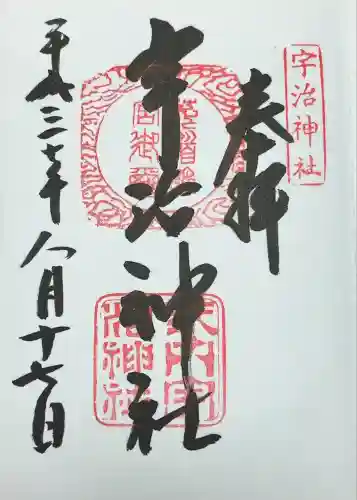 宇治神社
奉拝
宇治神社
平成三十年八月十七日